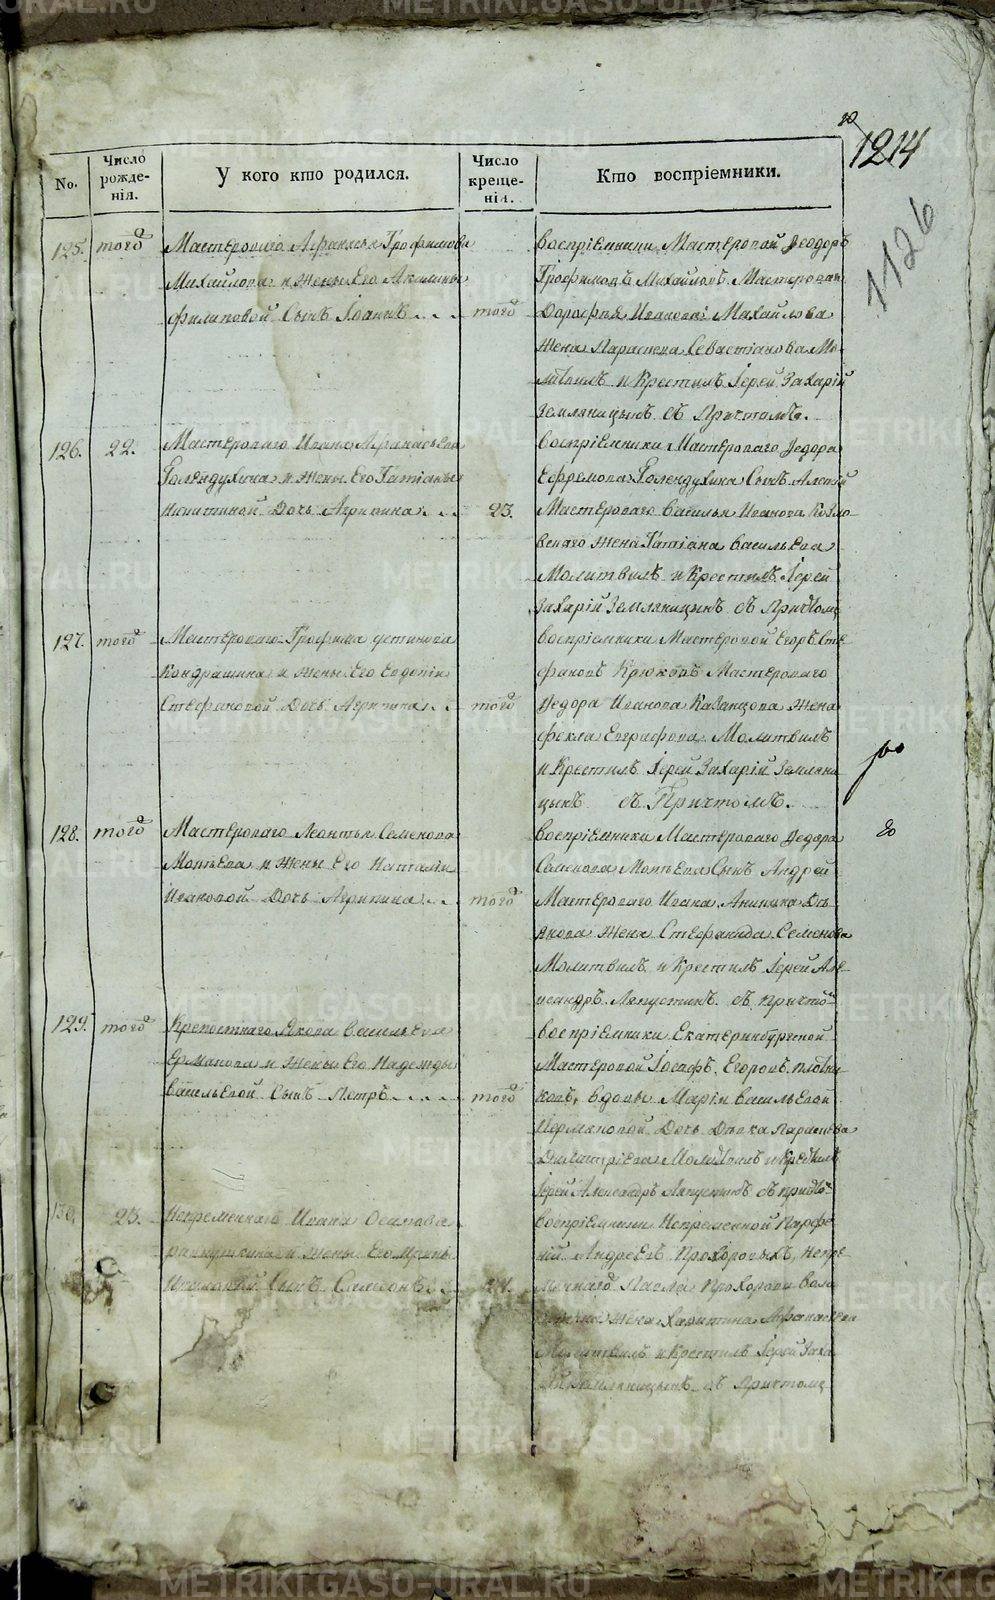 1214
1126
No.
Число рожде-нія.
У кого кто родился.
Число креще-нія.
Кто воспріемники.
125. того
Мастероваго Афанасья Трофимова
Михайлова и жены Его Акилины
филиповой Сынъ Іоаннъ . . . того
Воспріемники Мастеровой Ѳеодоръ
Трофимовъ Михайловъ Мастероваго
Дорофея Иванова Михайлова
жена Параскева Севастіанова Мо-
литвилъ и Крестилъ Іерей Захарій
Земляницынъ съ Причтомъ.
126. 22.
Мастероваго Ивана Афанасьева
Голендухина и жены Его Татіаны
Никитиной Дочь Агрипина . . . 23.
Воспріемники Мастероваго Ѳедора
Ефремова Голендухина Сынъ
Мастероваго Василья Иванова Козло-
вскаго жена Татіана Васильева
Молитвилъ и Крестилъ Іерей
Захарій Земляницынъ съ Причтомъ
127. того
Мастероваго Трофима Устинова
Кондрашина и жены Его Евдокіи
Стефановой Дочь Агрипина . . . того
Воспріемники Мастеровой Егоръ Сте
фановъ Крюковъ Мастероваго
Ѳедора Иванова Казанцова жена
Фекла Евграфова Молитвилъ
и Крестилъ Іерей Захарій Земляни
цынъ съ Причтомъ.
128. того
Мастероваго Леонтья Семенова
Мокѣева и жены Его Наталіи
Ивановой Дочь Агрипина . . . того
Воспріемники Мастероваго Ѳедора
Семенова Мокѣева Сынъ Андрей
Мастероваго Ивана Аникина Дь-
якова жена Стефанида Семенова
Молитвилъ и Крестилъ Іерей Але-
ксандръ Ляпустинъ съ причто
129. того
Крепостнаго Якова Васильева
Ермакова и жены Его Надежды
Васильевой Сынъ Петръ . . . . того
Воспріемники Екатеринбургской
Мастеровой Іосафъ Егоровъ Плотни
ковъ, Вдовы Маріи Васильевой
Дочь Дѣвка Параскева
Димитріева Молитвилъ и Крестилъ
Іерей Александръ Ляпустинъ съ причто
130. 23.
Непременнаго Ивана Осипова
и жены Его Ирины
Сынъ Самсонъ . . . 24.
Воспріемники Непременной Парфе
ній Андреевъ Прохоровыхъ, Непре
меннаго Павла Прохорова
жена Харитина Афанасьева
Молитвилъ и Крестилъ Іерей Заха
рій Земляницынъ съ Причтомъ
METRIKI.GASO-URAL.RU